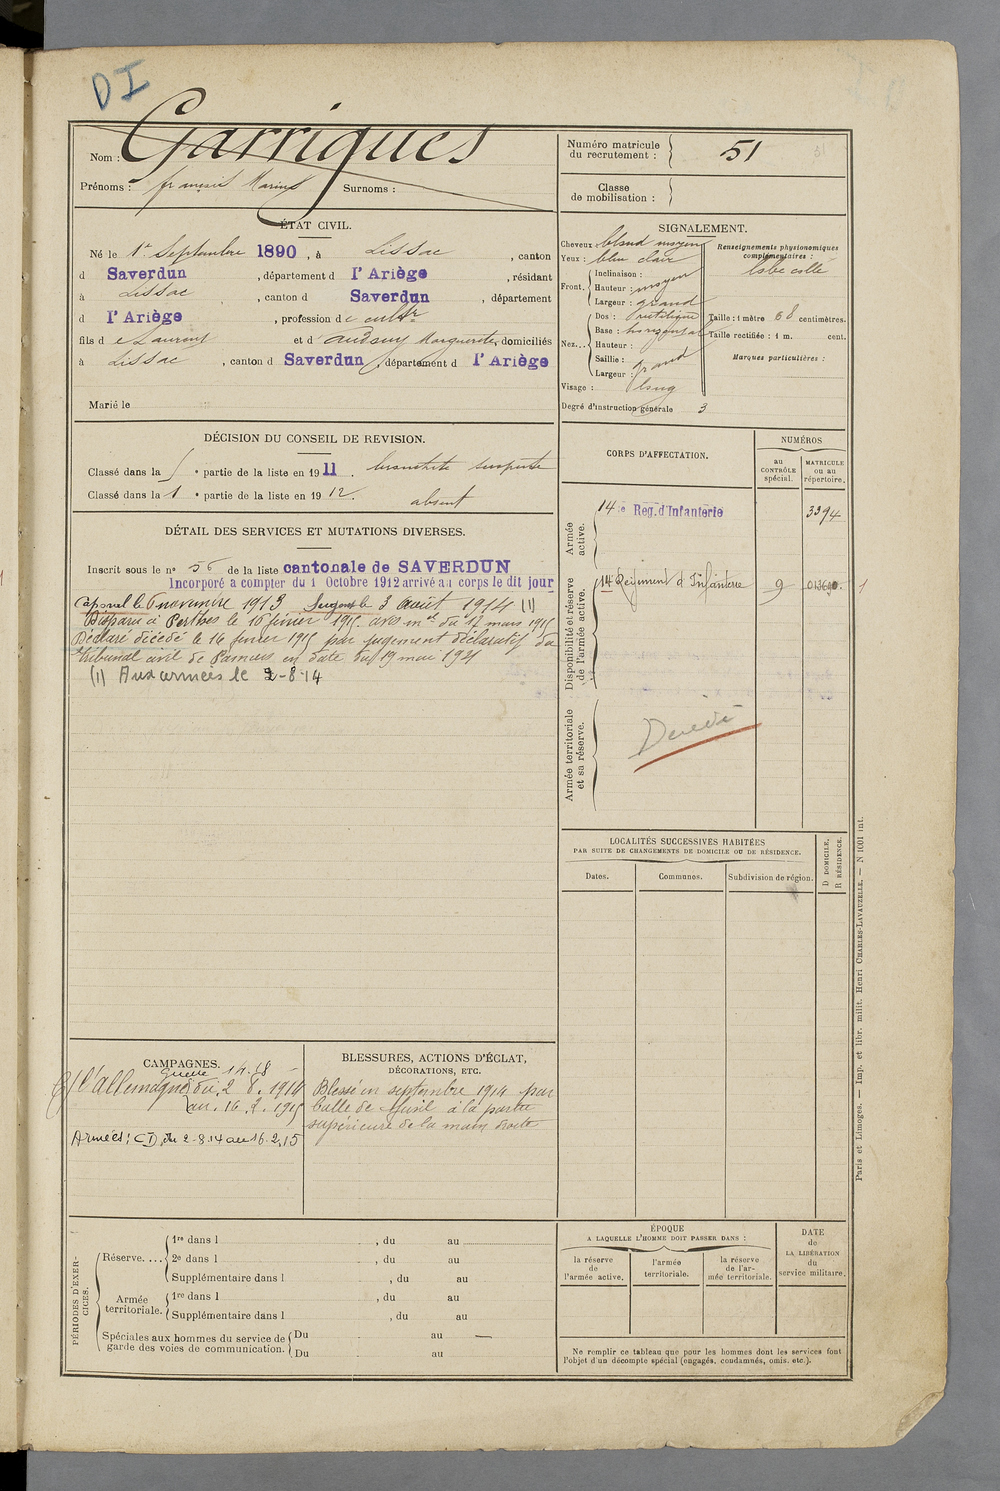 DI
Nom : Garrigues
Prénoms : françois Marius Surnoms :
Numéro matricule du recrutement : 51
Classe de mobilisation :
ÉTAT CIVIL.
Né le 1er Septembre 1890, à Lissac, canton
d Saverdun, département d l'Ariège, résidant
à Lissac, canton d Saverdun, département
d l'Ariège, profession de cultr
fils de Laurent et d' Marguerite, domiciliés
à Lissac, canton d Saverdun, département d l'Ariège
Marié le
SIGNALEMENT.
Cheveux : blond moyen
Yeux : bleu clair
Front. Inclinaison :
Hauteur : moyen
Largeur : grand
Nez... Dos : rectiligne
Base : horizontal
Hauteur :
Saillie : grand
Largeur :
Visage : long
Degré d'instruction générale 3
Renseignements physionomiques complémentaires :
lobe collé
Taille : 1 mètre 68 centimètres.
Taille rectifiée : 1 m. cent.
Marques particulières :
DÉCISION DU CONSEIL DE REVISION.
Classé dans la 5e partie de la liste en 1911. bronchite suspecte
Classé dans la 1e partie de la liste en 1912. absent
DÉTAIL DES SERVICES ET MUTATIONS DIVERSES.
Inscrit sous le no 56 de la liste cantonale de SAVERDUN
Incorporé a compter du 1 Octobre 1912 arrivé au corps le dit jour
Caporal le 6 novembre 1913 Sergent le 3 août 1914 (1)
Disparu à Perthes le 16 février 1915 avis mel du 17 mars 1915
Déclaré décédé le 16 février 1915 par jugement déclaratif du
tribunal civil de Pamiers en date du 19 mai 1921
(1) Aux armées le 2-8-14
CORPS D'AFFECTATION.
NUMÉROS
au CONTRÔLE spécial.
MATRICULE ou au répertoire.
Armée active.
14 e Reg. d'Infanterie 3394
Disponibilité et réserve de l'armée active.
14 Régiment d'Infanterie 9
Armée territoriale et sa réserve.
Décédé
LOCALITÉS SUCCESSIVES HABITÉES
PAR SUITE DE CHANGEMENTS DE DOMICILE OU DE RÉSIDENCE.
Dates. Communes. Subdivision de région. D DOMICILE. R RÉSIDENCE.
CAMPAGNES.
Guerre 14.18
C/ l'allemagne du 2.8.1914
au 16.2.1915
Armées : CD, du 2-8-14 au 16.2.15
BLESSURES, ACTIONS D'ÉCLAT,
DÉCORATIONS, ETC.
Blessé en septembre 1914 par
balle de fusil à la partie
supérieure de la main droite
PÉRIODES D'EXERCICES.
Réserve.... 1re dans l , du au
2e dans l , du au
Supplémentaire dans l , du au
Armée territoriale. 1re dans l , du au
Supplémentaire dans l , du au
Spéciales aux hommes du service de garde des voies de communication. Du au —
Du au
ÉPOQUE
A LAQUELLE L'HOMME DOIT PASSER DANS :
la réserve de l'armée active.
l'armée territoriale.
la réserve de l'armée territoriale.
DATE de LA LIBÉRATION du service militaire.
Ne remplir ce tableau que pour les hommes dont les services font
l'objet d'un décompte spécial (engagés, condamnés, omis, etc.).
Paris et Limoges. — Imp. et libr. milit. Henri CHARLES-LAVAUZELLE. — N 1001 int.